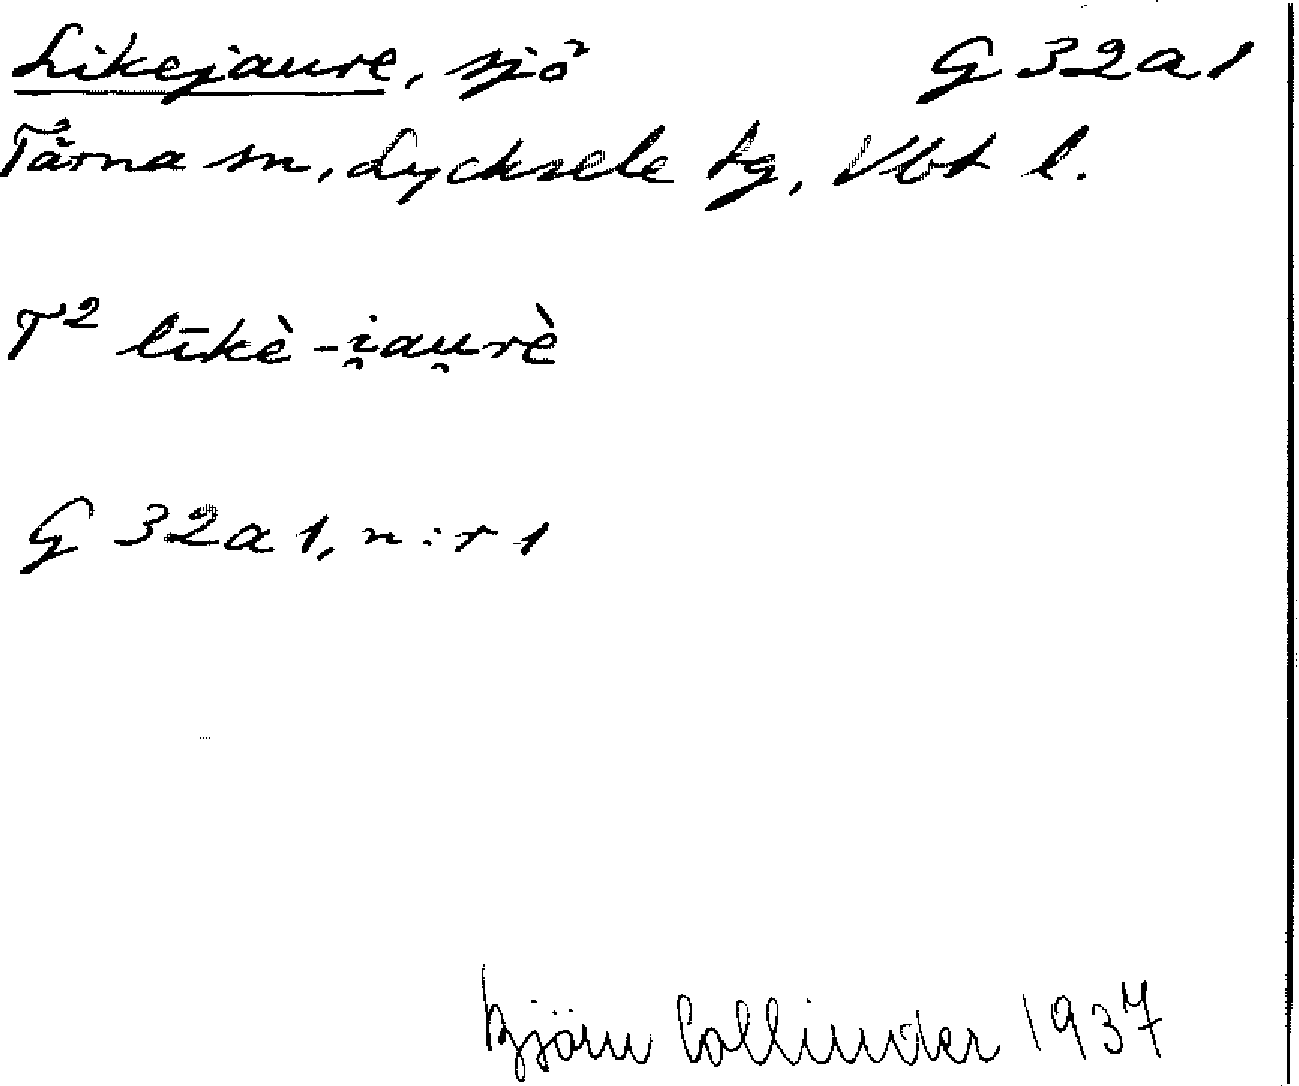 Likejaure, sjö G 32a1
Tärna sn, Lycksele tg, Vbt l.
T² līkè-i̯au̯rè
G 32a1, n:r 1
Björn Collinder 1937